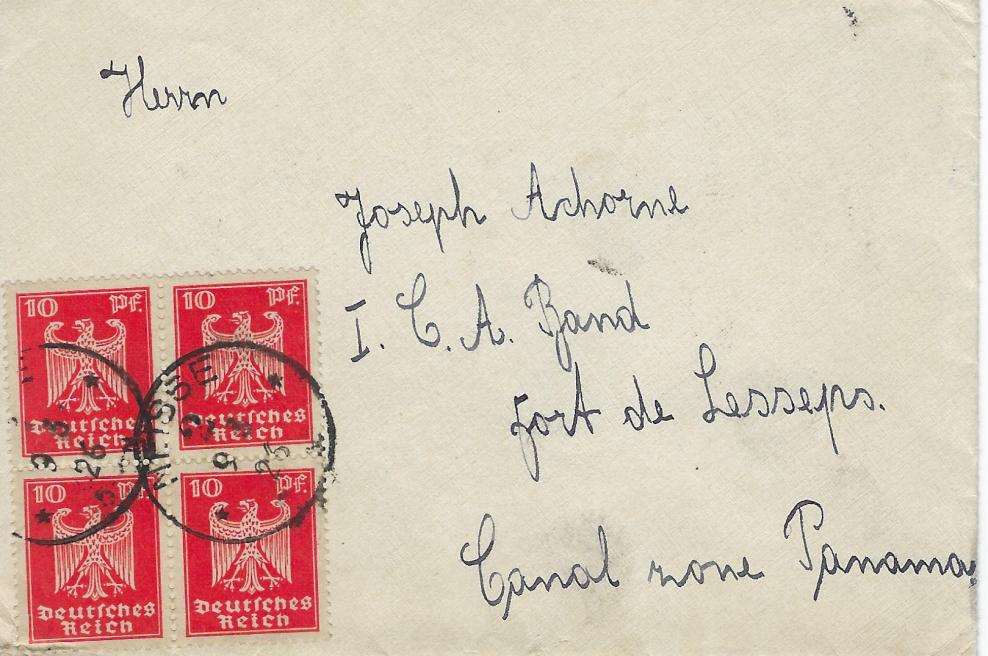 Herrn
Joseph Achorne
I. C. A. Band
Fort de Lesseps.
Canal zone Panama.
10 Pf.
Deutsches
Reich
10 Pf.
Deutsches
Reich
10 Pf.
Deutsches
Reich
10 Pf.
Deutsches
Reich
NEISSE